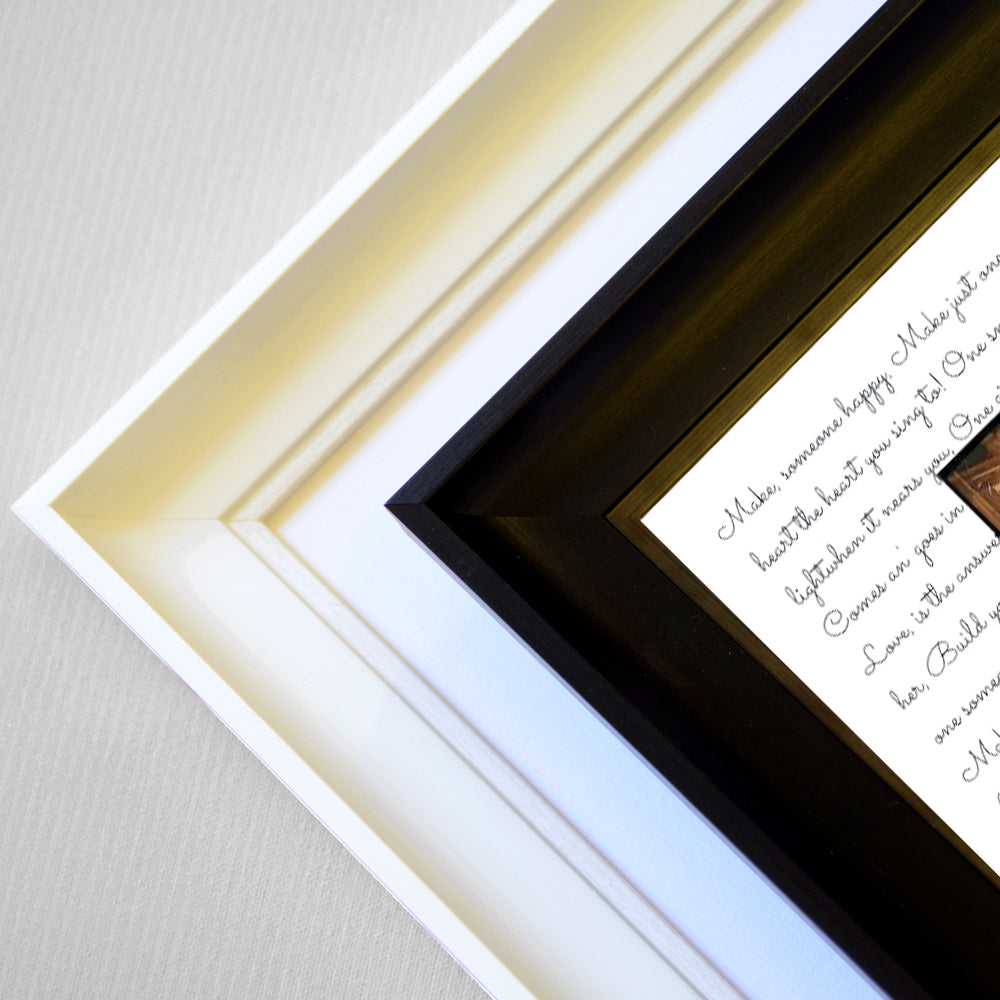 Make, someone happy. Make just one
heart the heart you sing to! One
lightwhen it nears you, One
Comes an' goes in
Love, is the answer
her, Build
one